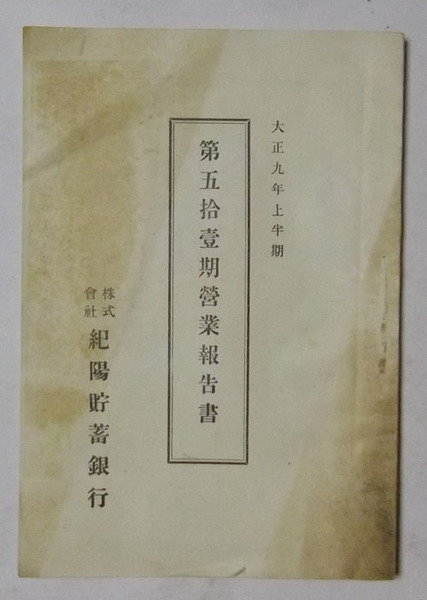 大正九年上半期
第五拾壹期營業報告書
株式會社 紀陽貯蓄銀行